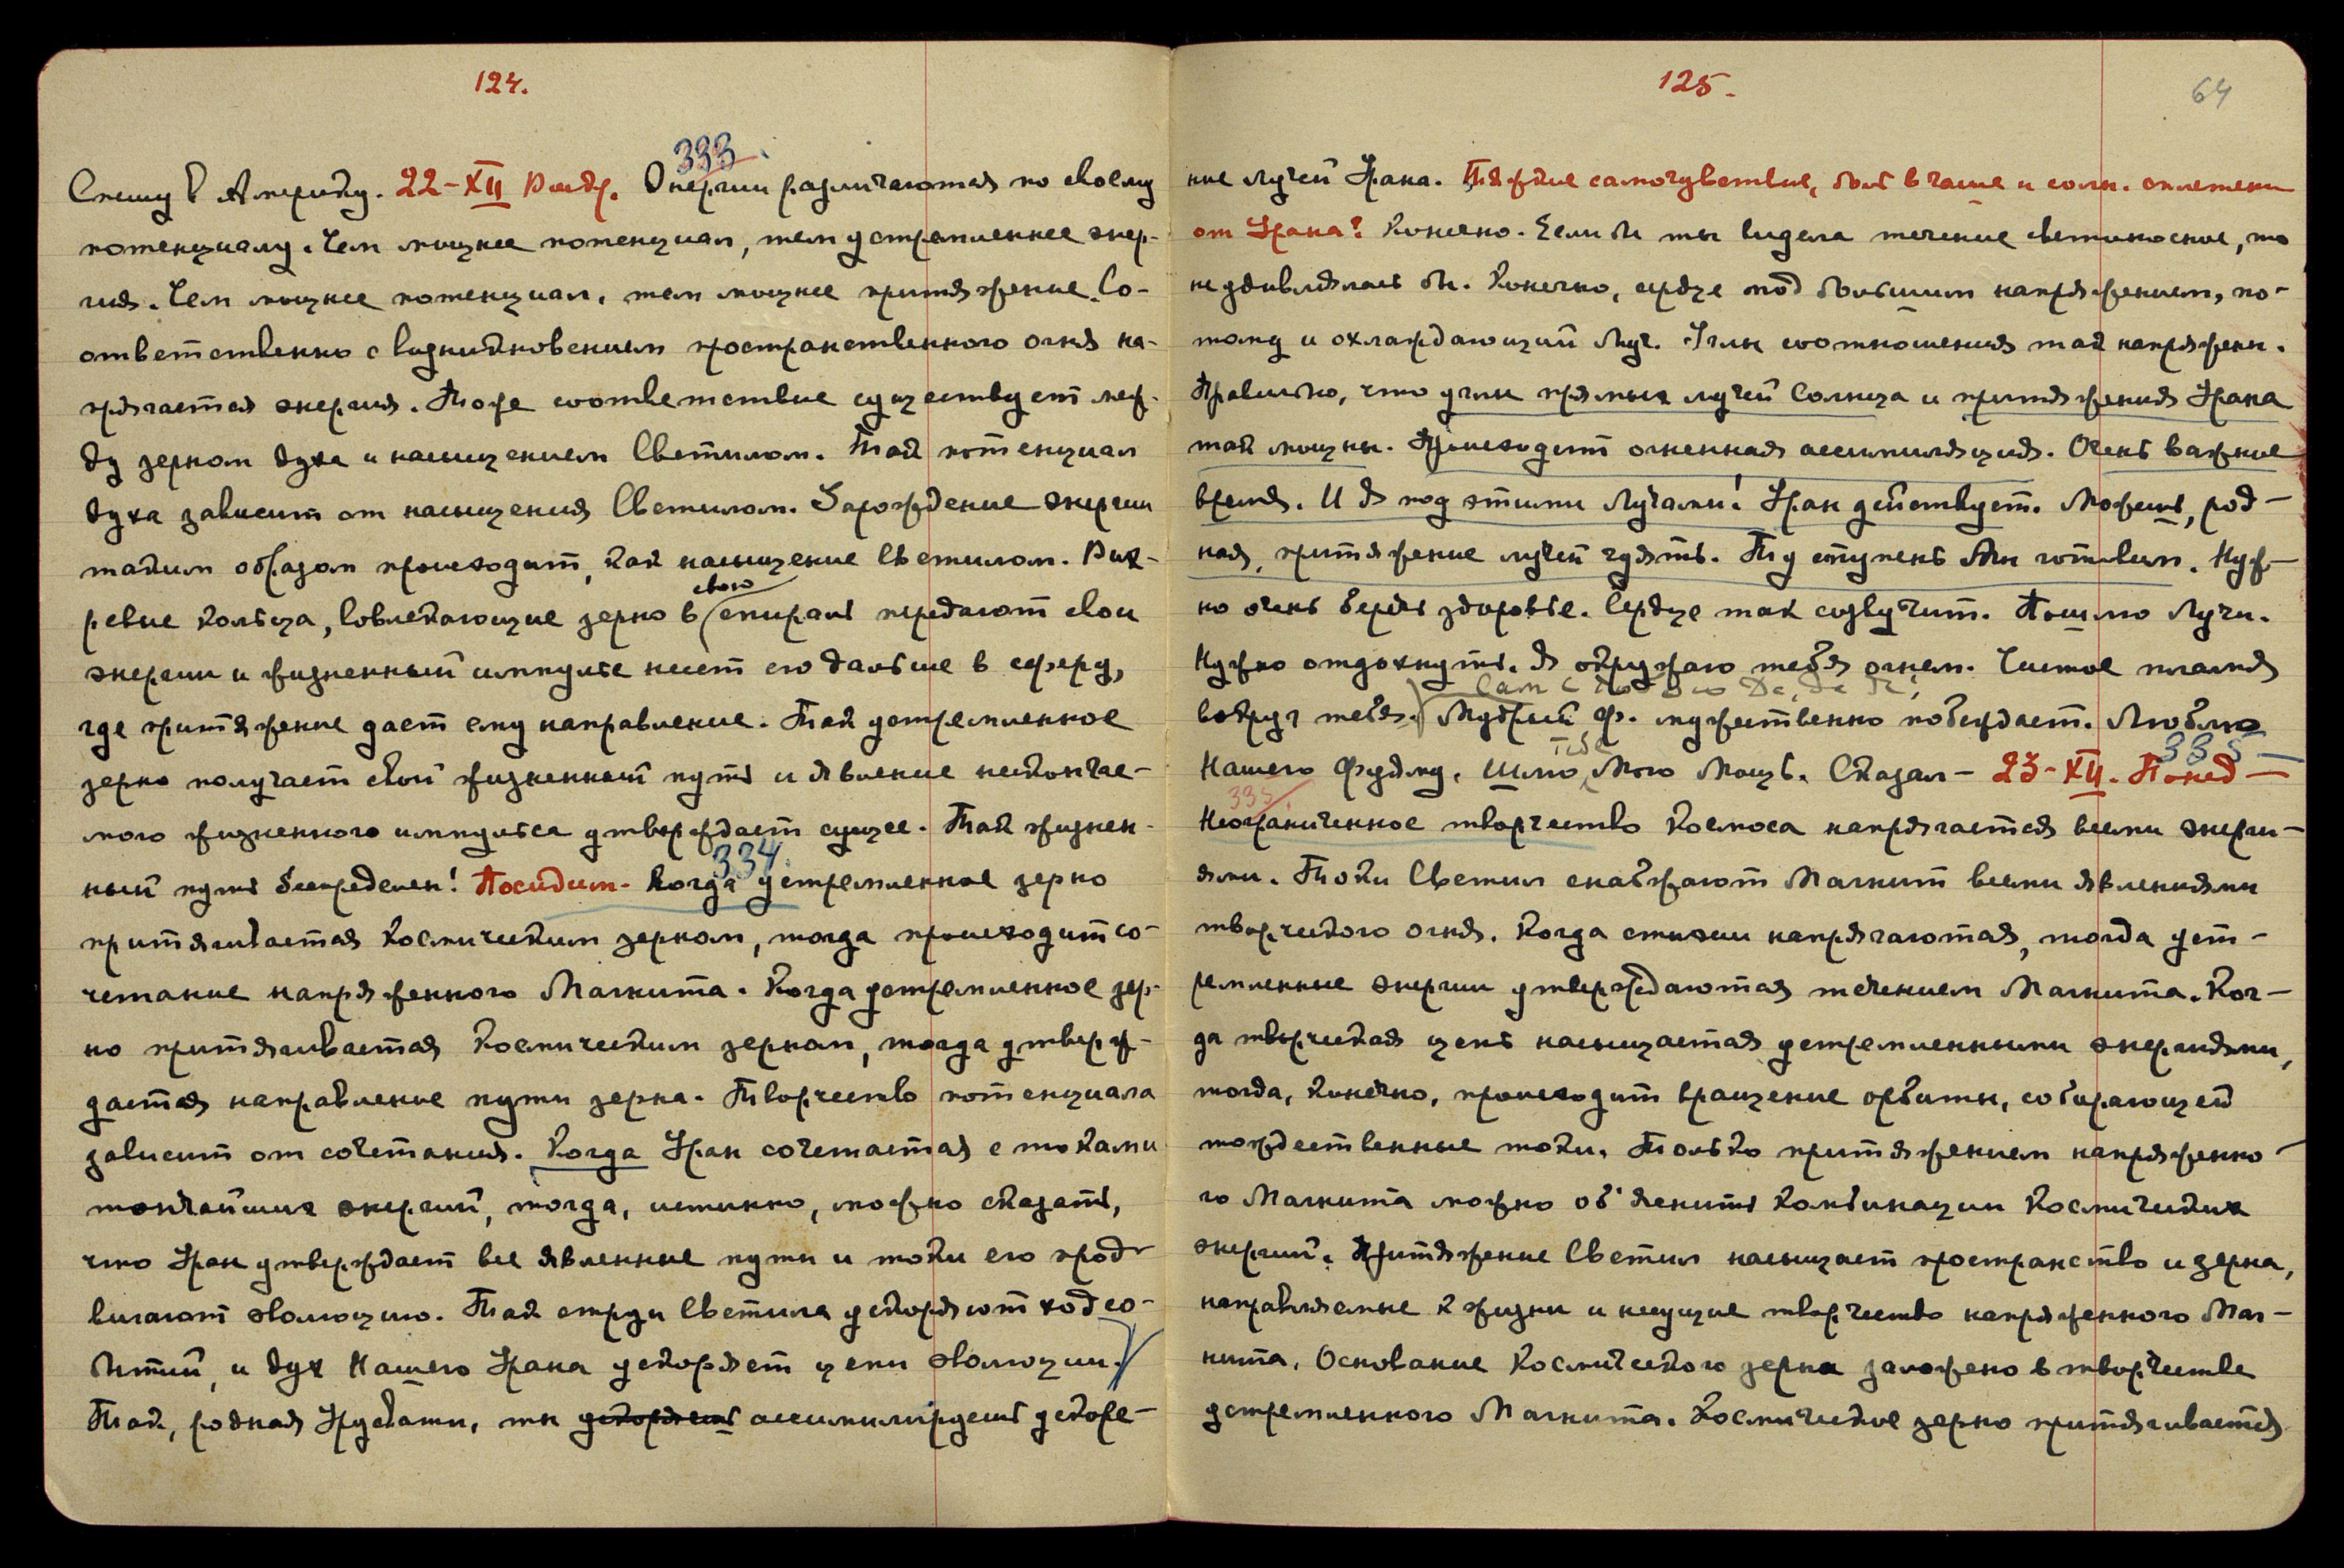 124.
333
Спешу в Америку. 22-XII Энергии различаются по своему
потенциалу. Чем мощнее потенциал, тем устремленнее энер-
гия. Чем мощнее потенциал, тем мощнее притяжение. Со-
ответственно с возникновением пространственного огня на-
прягается энергия. Тоже соответствие существует меж-
ду зерном духа и насыщением Светилом. Так потенциал
духа зависит от насыщения Светилом. Зарождение энергии
таким образом происходит, как насыщение светилом. Вих-
свою
ревые кольца, вовлекающие зерно в спираль передают свои
энергии и жизненный импульс несет его дальше в сферу,
где притяжение дает ему направление. Так устремленное
зерно получает свой жизненный путь и явление нескончае-
мого жизненного импульса утверждает сущее. Так жизнен-
334.
ный путь беспределен! Посидим. Когда устремленное зерно
притягивается космическим зерном, тогда происходит со-
четание напряженного Магнита. Когда устремленное зер-
но притягивается космическим зерном, тогда утверж-
дается направление пути зерна. Творчество потенциала
зависит от сочетания. Когда Уран сочетается с токами
тончайших энергий, тогда, истинно, можно сказать,
что Уран утверждает все явленные пути и токи его прод-
вигают эволюцию. Так струи Светила ускоряют ход со-
бытий, и дух Нашего Урана ускоряет цепи эволюции.
Так, родная Урусвати, ты ускоряешь ассимилируешь ускоре-
125.
64
ние лучей Урана. Тяжкие самочувствие, боль в чаше и солн. сплетени
от Урана? Конечно. Если бы ты видела течение светоносное, то
не удивлялась бы. Конечно, сердце под большим напряжением, по-
тому и охлаждающий Луч. Углы соотношения так напряжены.
Правильно, что углы прямых лучей Солнца и притяжения Урана
так мощны. Происходит огненная ассимиляция. Очень важное
время. И я под этими Лучами! Уран действует. Можешь, род-
ная, притяжение лучей чуять. Ту ступень Мы готовим. Нуж-
но очень беречь здоровье. Сердце так созвучит. Пошлю Лучи.
Нужно отдохнуть. Я окружаю тебя огнем. Чистое пламя
вокруг тебя. Мудрый Ф. мужественно побеждает. Люблю
335-
Нашего Фуяму. Шлю Мою Мощь. Сказал- 23-XII. Понед-
335.
Неограниченное творчество Космоса напрягается всеми энерги-
ями. Токи Светил снабжают Магнит всеми явлениями
творческого огня. Когда стихии напрягаются, тогда уст-
ремленные энергии утверждаются течением Магнита. Ког-
да творческая цепь насыщается устремленными энергиями,
тогда, конечно, происходит вращение орбиты, собирающей
тождественные токи. Только притяжением напряженно-
го Магнита можно об'яснить комбинации космических
энергий. Притяжение Светил насыщает пространство и зерна,
направляемые к жизни и несущие творчество напряженного Маг-
нита. Основание космического зерна заложено в творчестве
устремленного Магнита. Космическое зерно притягивается